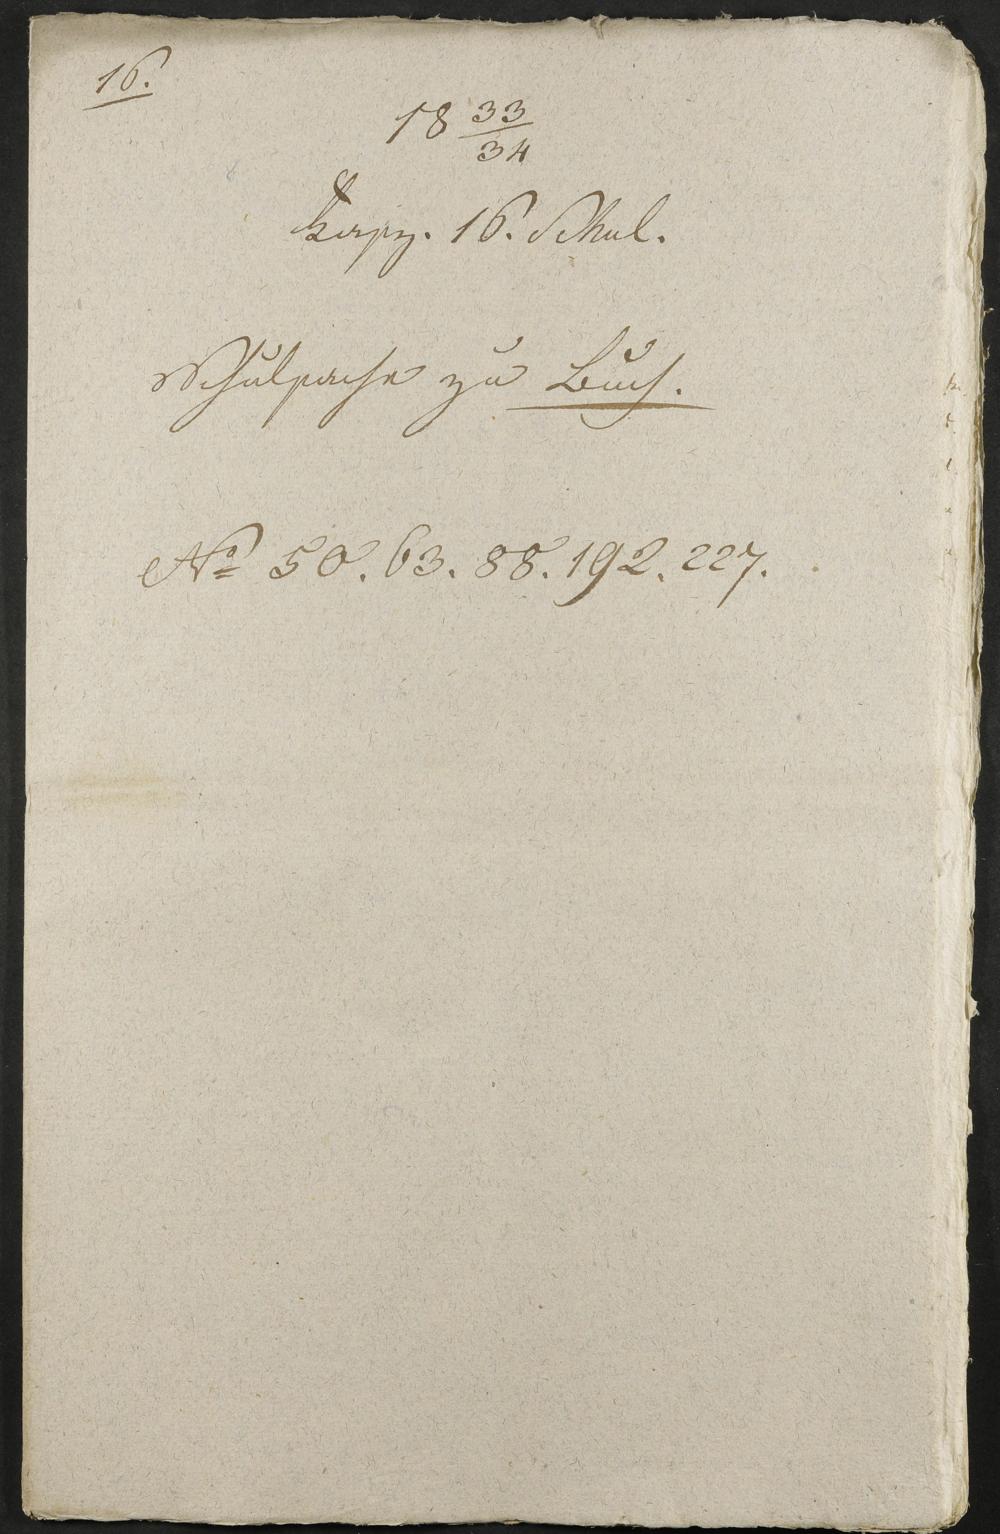 16.
18 33/34
Kapz. 16. Schul.
Schulsache zu Buch.
No 50. 63. 88. 192. 227.